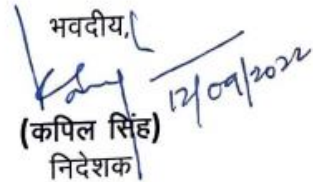 भवदीय,
12/09/2022
(कपिल सिंह)
निदेशक